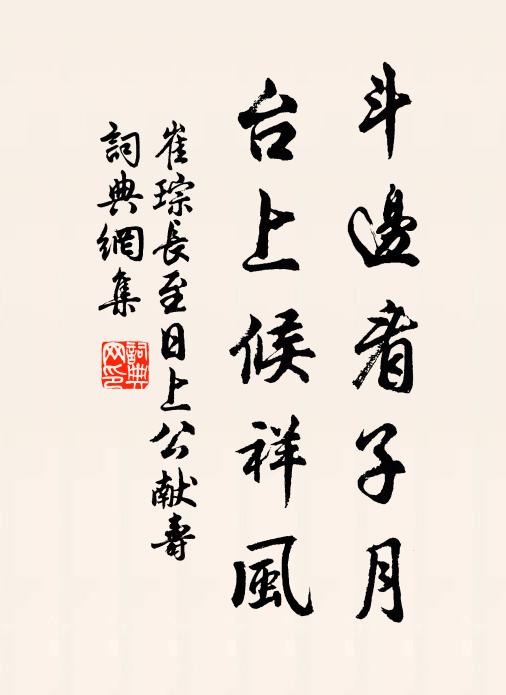 斗邊看子月
台上候祥風
崔琮長至日上公献壽
詞典網集
詞典网印